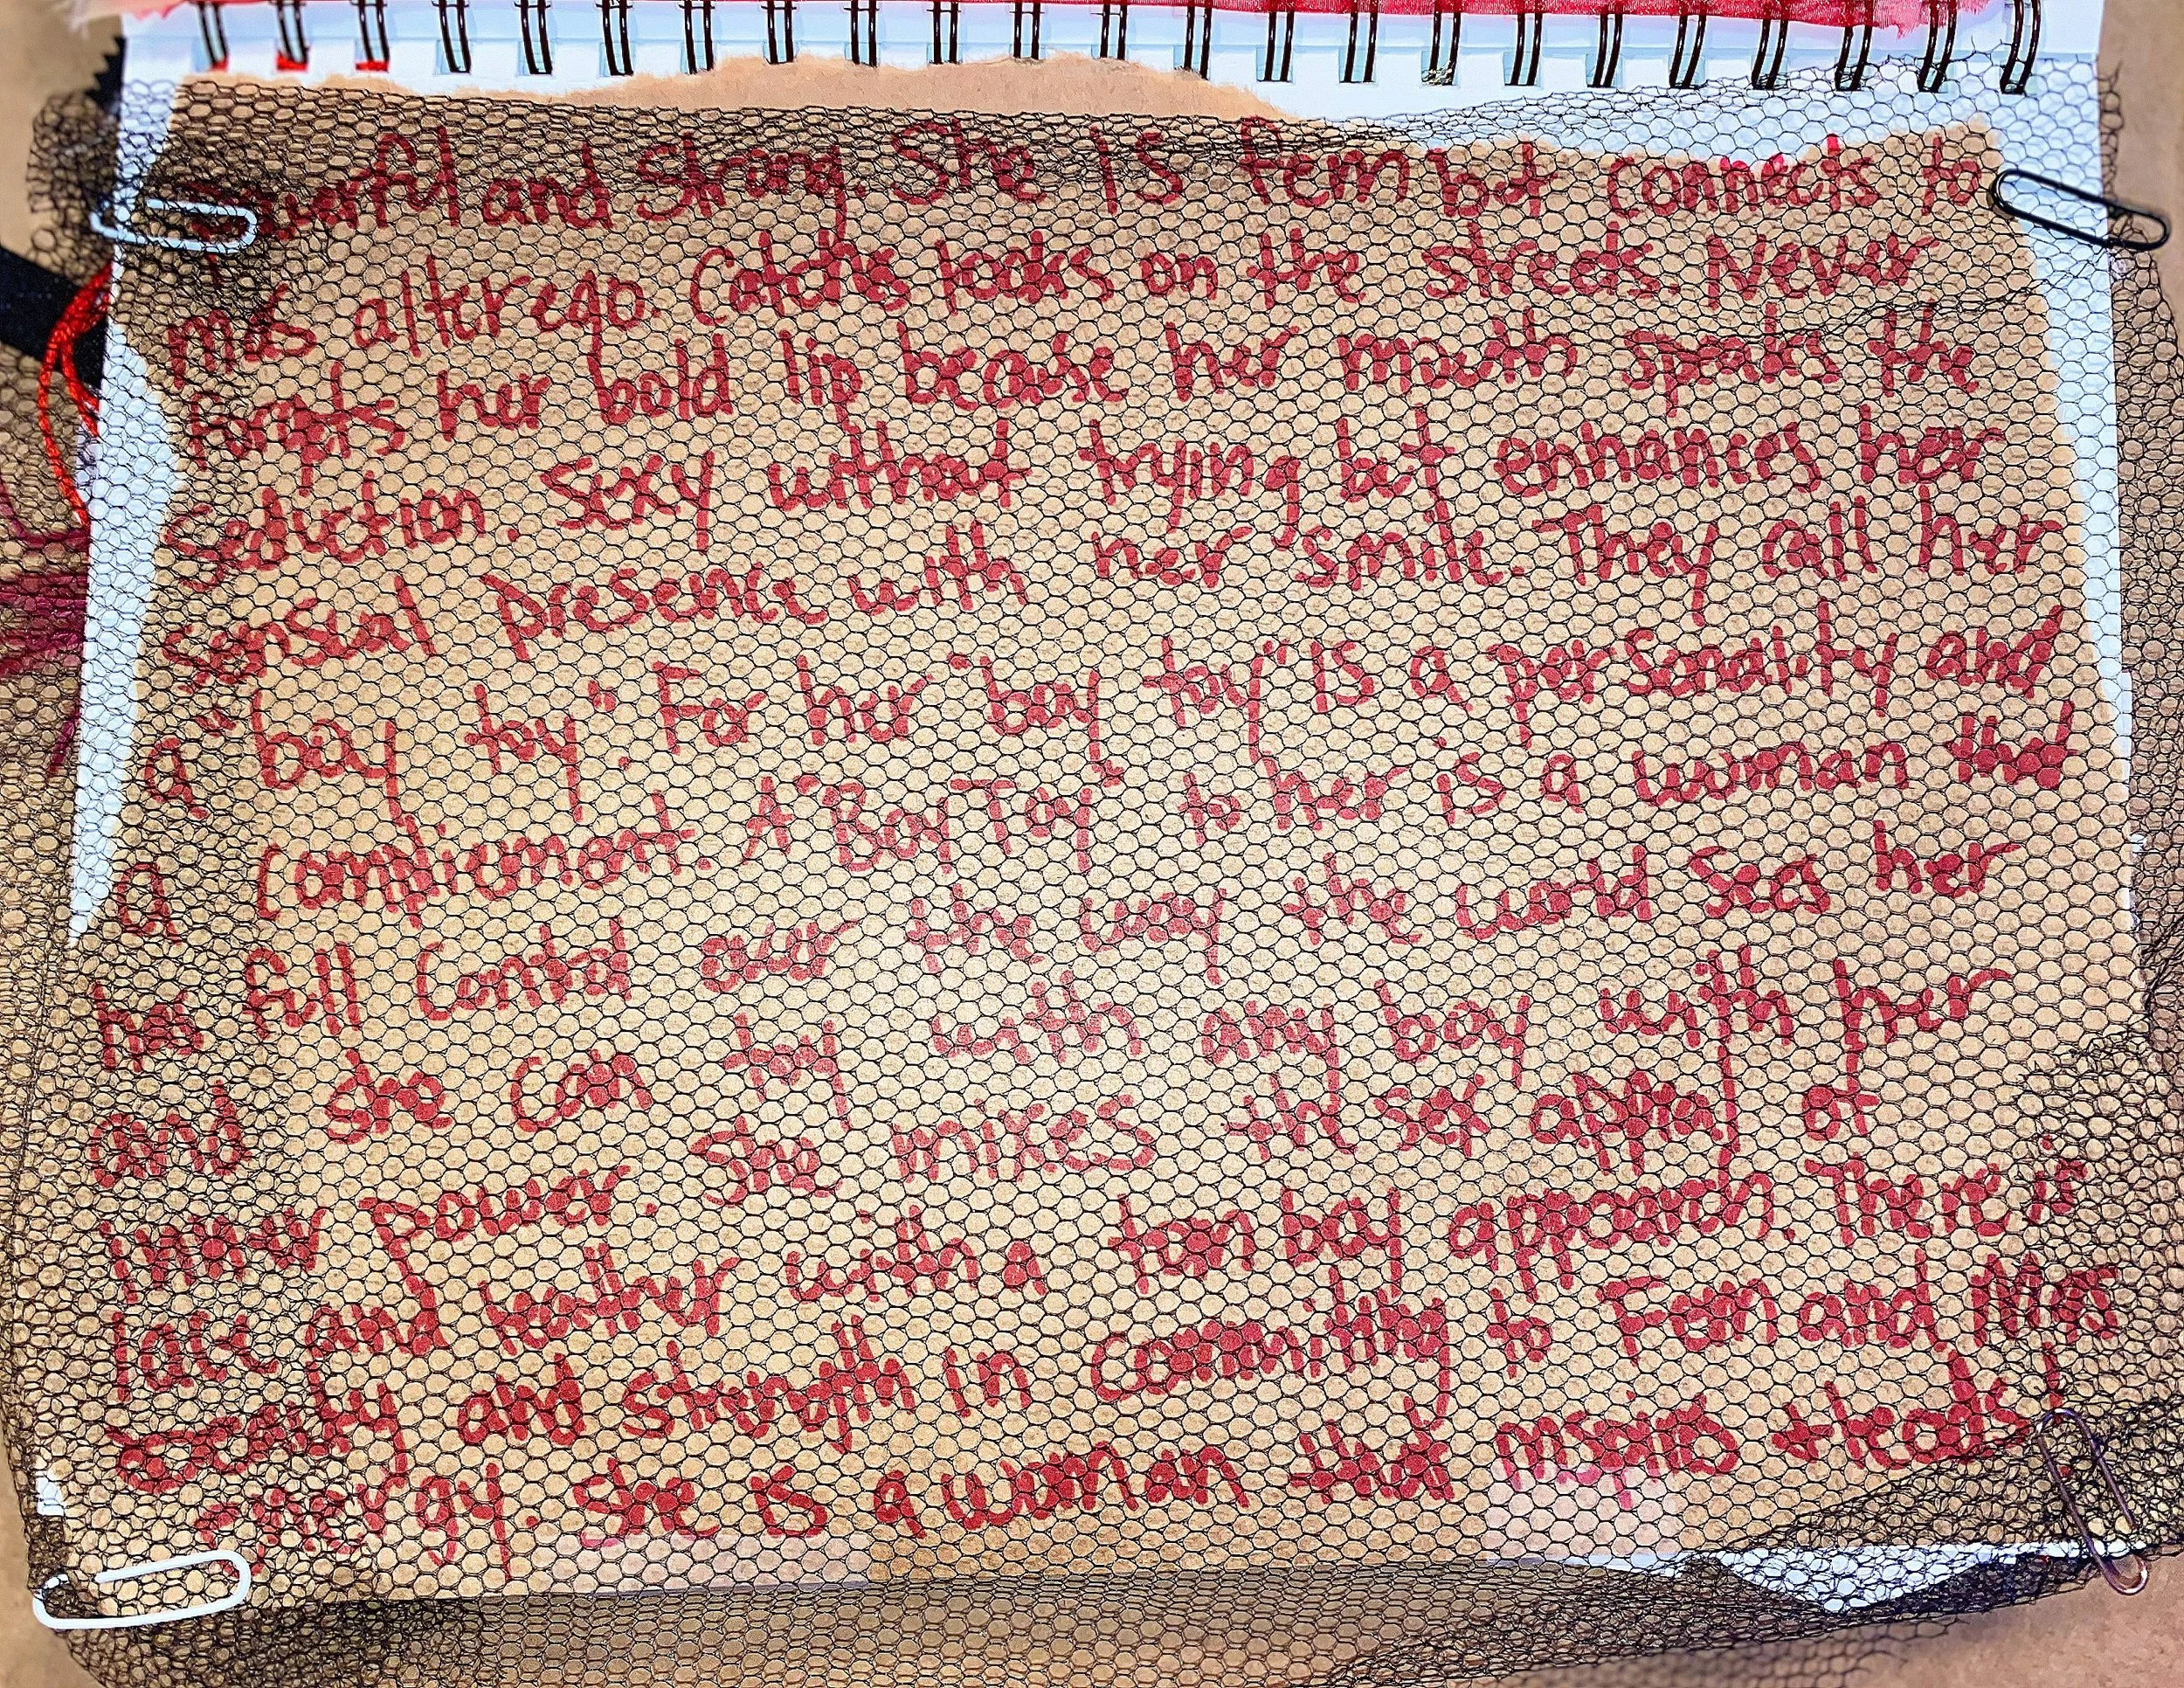 Powerful and Strong. She IS fem but connects to
mas alter ego. Catchs looks on the streets. Never
forgets her bold lip because her mouth speaks the
Seduction. Sexy without trying but enhances her
Sensual presence with her smile. They call her
a "boy toy". For her "boy toy" IS a personality and
a complement. A "Boy Toy" to her is a woman that
has full Control over the way the world sees her
and she can toy with any boy with her
inner power. She mixes the sex appeal of
lace and leather with a tomboy approach. There is
beauty and strength in committing to Fem and Mas
energy. She is a woman that